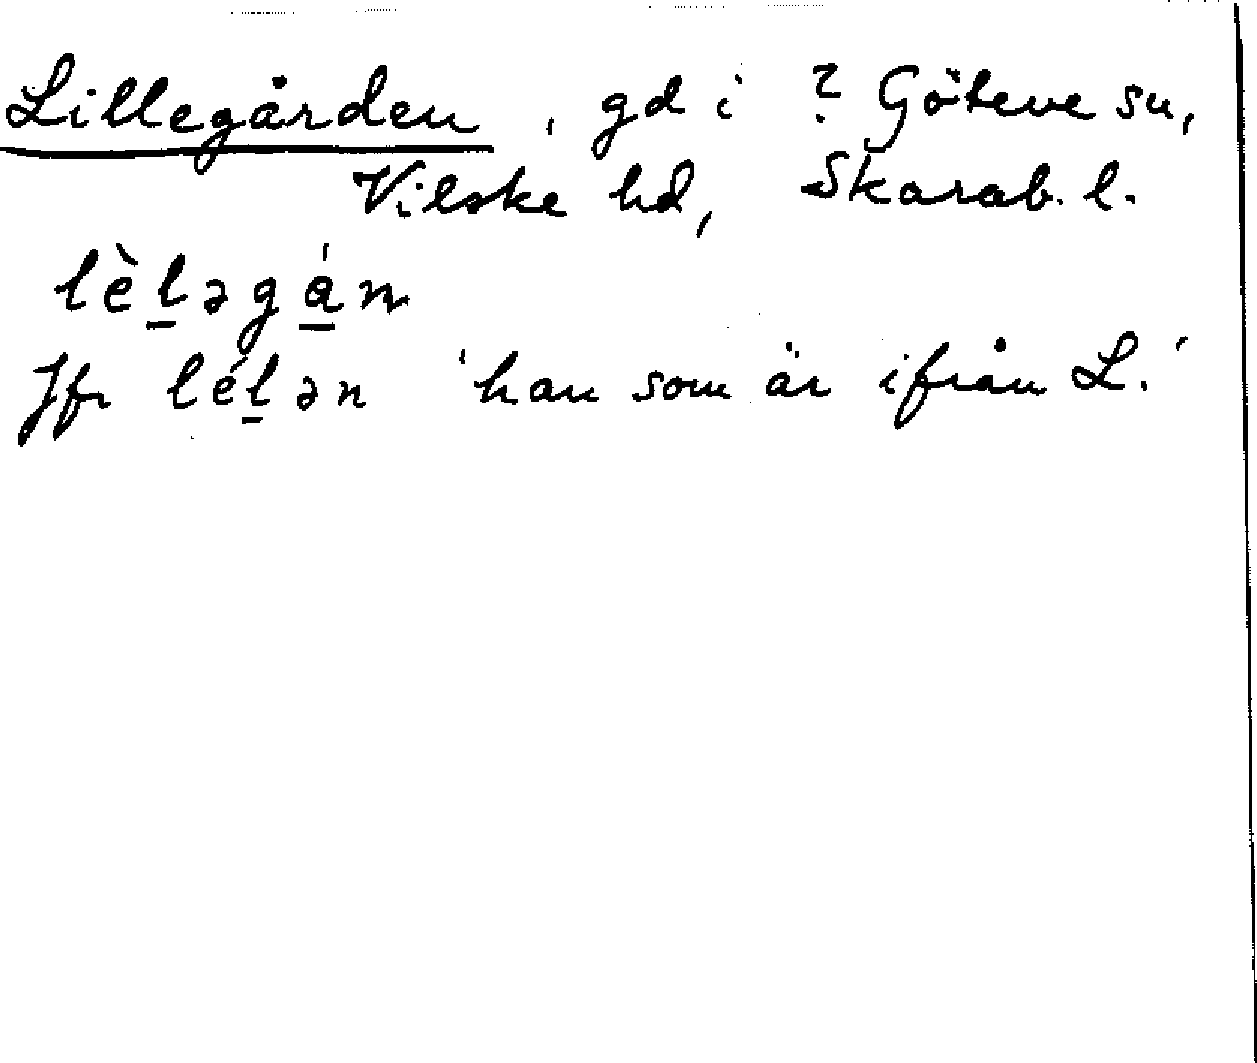 Lillegården, gd i ? Göteve sn,
Vilske hd, Skarab. l.
lèl̲əgá̲n
Jfr lél̲ən 'han som är ifrån L.'